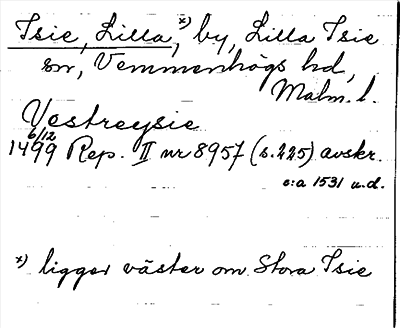 Isie, Lilla,*) by, Lilla Isie
sn, Vemmenhögs hd,
Malm. l.
Vestreysie
6/12
1499 Rep. II nr 8957 (s. 225) avskr.
c:a 1531 u.d.
*) ligger väster om Stora Isie